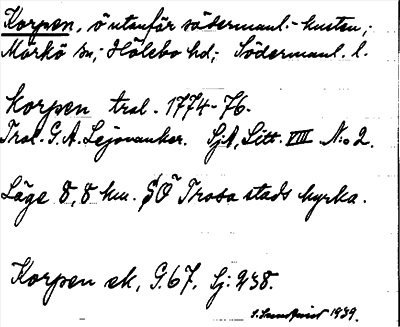 Korpen, ö utanför södermanl.-kusten,;
Mörkö sn; Hölebo hd; Södermanl. l.
Korpen tral. 1774-76.
Tral. G. A. Lejonanker. SjA, Litt. VIII No 2.
Läge 8,8 km. SO Trosa stads kyrka.
Korpen ek, G.67, Sj: 238.
1939.